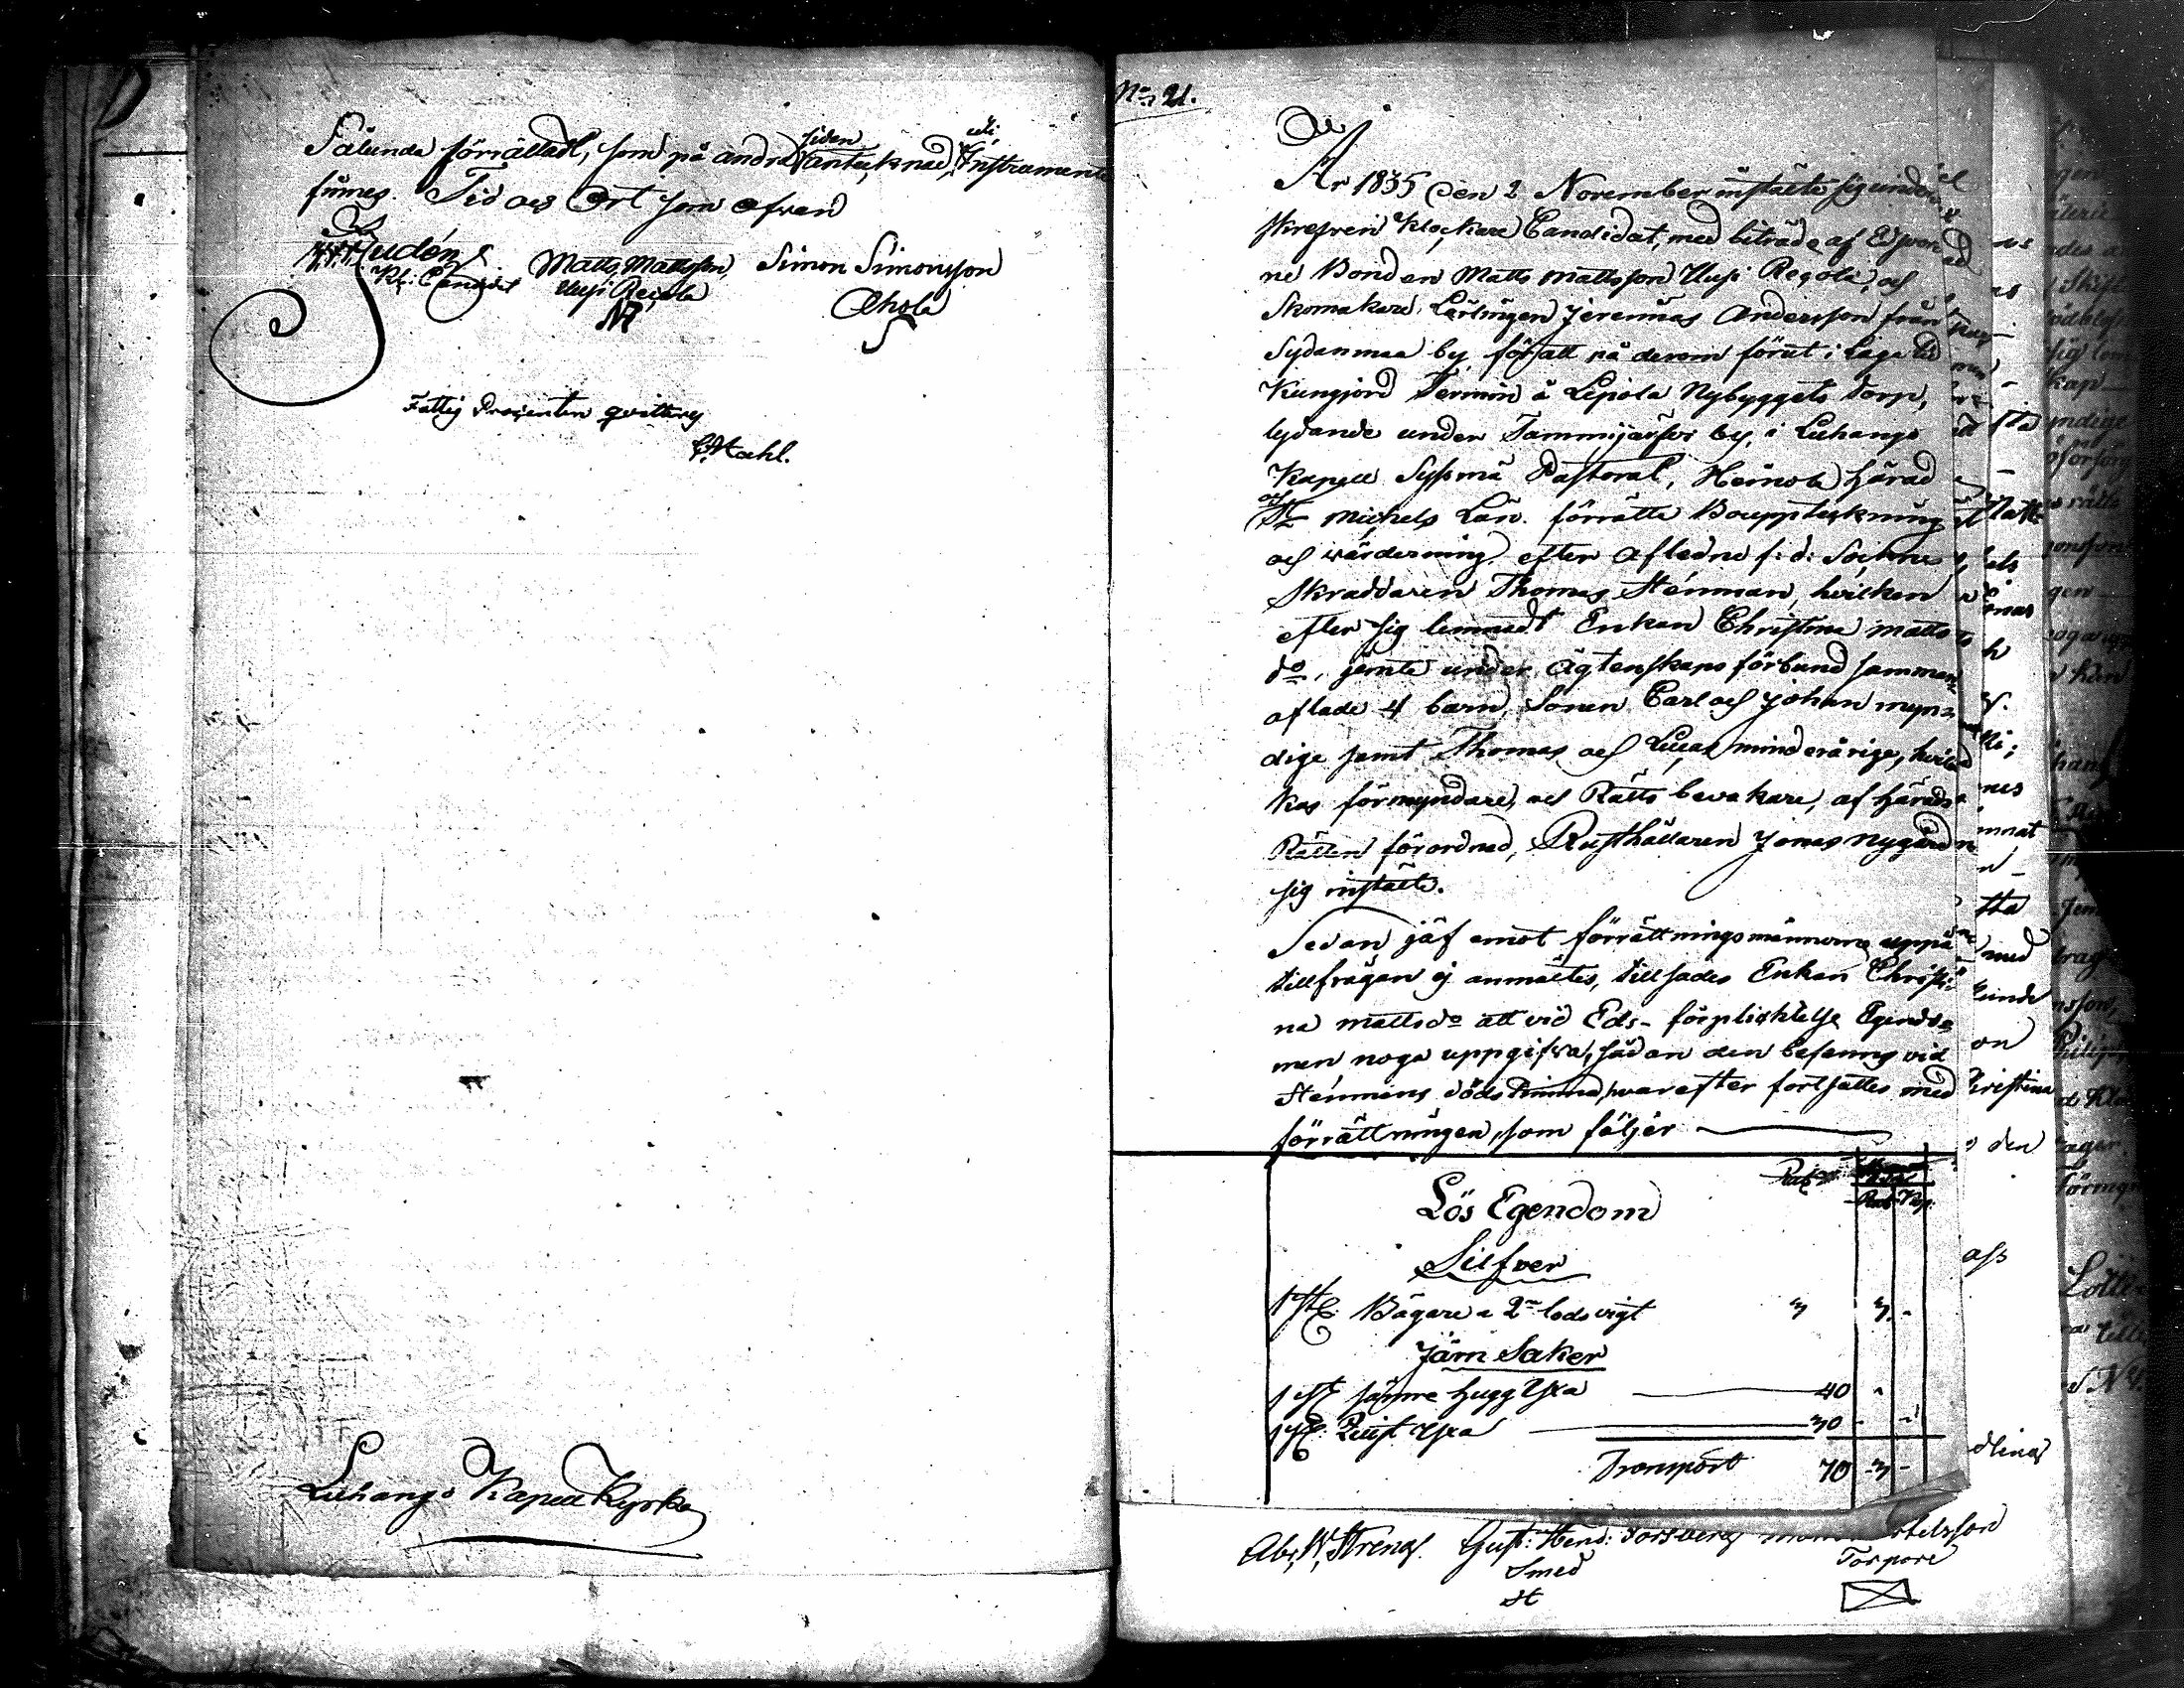 Sålunda förrättadt, som på andra sidan antecknad, i Instrumente
finnes. Tid och Ort som ofvan
Judén
Kl. Candidat
Matts Mattsson
Uusi Regola
Simon Simonsson
Ahola
Fattig Procenten qvitteras
Stahl.
Luhango Kapell Kyrka
No 21.
År 1835 den 2 November instälte sig under
skrefven Klockare Candidat, med biträde af Edsvor
ne Bonden Matts Mattsson Uusi Regola, och
Skomakare Lärlingen Jeremias Andersson från
Sydanmaa by, för att på derom förut i Laga tid
Kungjord Termin å Lepola Nybyggets Torp,
lydande under Tammijärfvi by, i Luhango
Kapell Sysmä Pastorat, Heinola Härad
och St Michels Län. förrätta Bouppteckning
och värdering efter Afledne f: d: Sockne
Skraddaren Thomas Stenman, hvilken
efter sig lemnadt Enkan Christina Matts
do, jemte under Ägtenskaps förbund samman
aflade 4 barn, Sonen Carl och Johan myn=
dige samt Thomas och Lucas minderårige, hvil
kas förmyndare, och Rätts bevakare, af Härads
Rätten förordnad, Rusthållaren Jonas Nygård
sig instälte.
Sedan jäf emot förrättningsmännerne uppå
tillfrågan ej anmältes, tillsades Enkan Christi=
na Mattsdo att vid Eds-förplichtelse Egendo=
men noga uppgifva, sådan den befanns vid
Stenmans dödstimma, hvarefter fortsattes med
förrättningen, som följer
Lös Egendom
Rub Kop.
Silfver
1 st. Bägare a 2 lods vigt " 3. -
Järn Saker
1 st. sämre hugg Yxa 40 "
1 st. Yxa 30 - -
Transport 70 3 -
Abr. W. Streng. Gust: Hend: Forsberg
Smed
Torpare